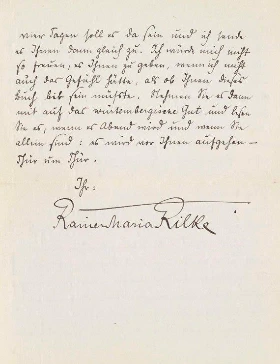 vier Tagen soll es da sein und ich sende
es Ihnen dann gleich zu. Ich würde mich nicht
so freuen, es Ihnen zu geben, wenn ich nicht
auch das Gefühl hätte, als ob Ihnen dieses
Buch lieb sein müsste. Nehmen Sie es dann
mit auf das württembergische Gut und lesen
Sie es, wenn es Abend wird und wenn Sie
allein sind: es wird vor Ihnen aufgehen –
Thür um Thür.
Ihr:
Rainer Maria Rilke